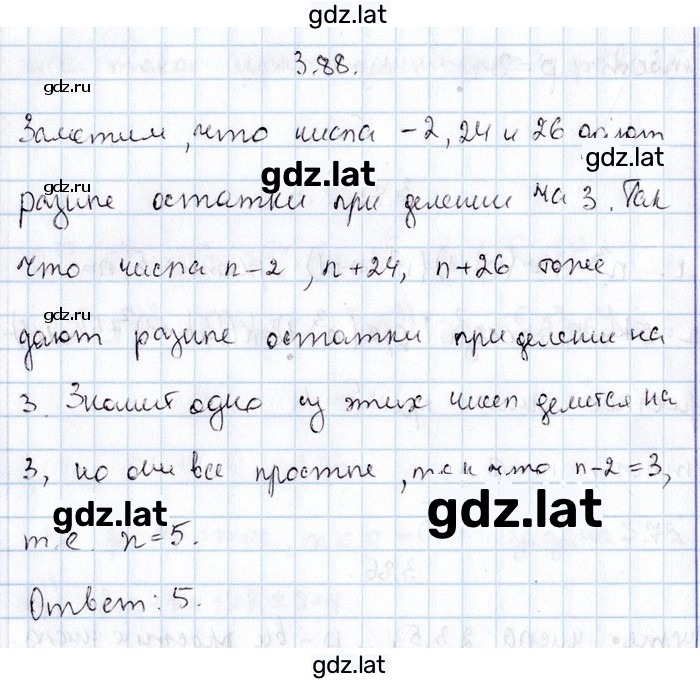 gdz.lat
3.88.
gdz.ru
gdz.ru
Заметим, что числа -2, 24 и 26 дают
gdz.lat
gdz.lat
gdz.ru
разные остатки при делении на 3. Так
что числа n-2, n+24, n+26 тоже
gdz.ru
gdz.lat
дают разные остатки при делении на
3. Значит одно из этих чисел делится на
3, но они все простые, так что n-2=3,
gdz.lat
gdz.lat
т.е. n=5.
Ответ: 5.
gdz.lat